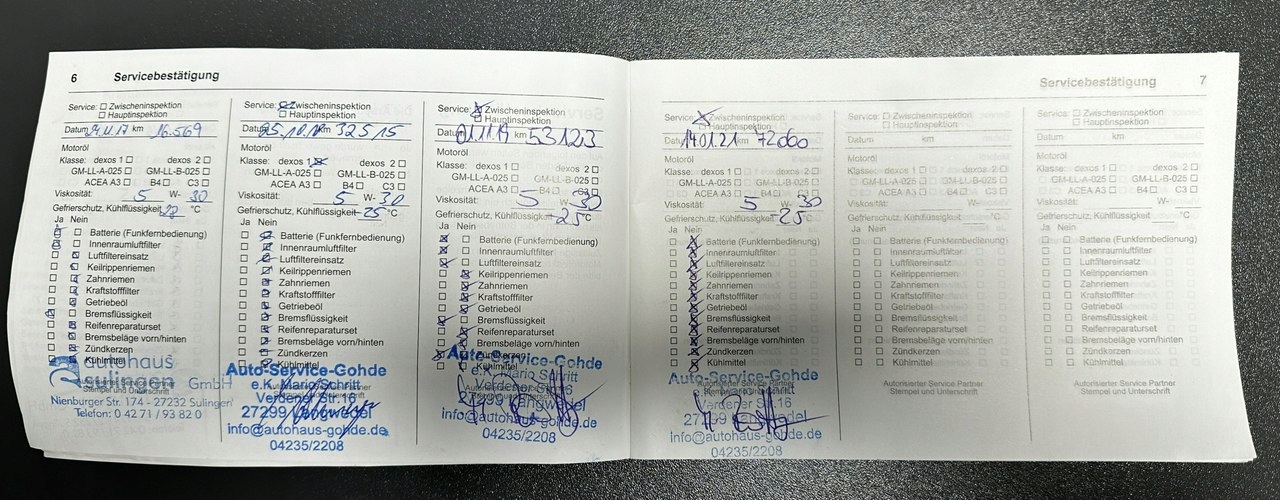 6 Servicebestätigung
Service: Zwischeninspektion
Hauptinspektion
Datum 24.11.17 km 16.569
Motoröl
Klasse: dexos 1 dexos 2
GM-LL-A-025 GM-LL-B-025
ACEA A3 B4 C3
Viskosität: 5 W- 30
Gefrierschutz, Kühlflüssigkeit °C
Ja Nein
Batterie (Funkfernbedienung)
Innenraumluftfilter
Luftfiltereinsatz
Keilrippenriemen
Zahnriemen
Kraftstofffilter
Getriebeöl
Bremsflüssigkeit
Reifenreparaturset
Bremsbeläge vorn/hinten
Zündkerzen
Kühlmittel
autohaus
sulingen GmbH
Stempel und Unterschrift
Nienburger Str. 174 - 27232 Sulingen
Telefon: 0 42 71 / 93 82 0
Service: Zwischeninspektion
Hauptinspektion
Datum 25.10.18 km 32515
Motoröl
Klasse: dexos 1 dexos 2
GM-LL-A-025 GM-LL-B-025
ACEA A3 B4 C3
Viskosität: 5 W- 30
Gefrierschutz, Kühlflüssigkeit -25 °C
Ja Nein
Batterie (Funkfernbedienung)
Innenraumluftfilter
Luftfiltereinsatz
Keilrippenriemen
Zahnriemen
Kraftstofffilter
Getriebeöl
Bremsflüssigkeit
Reifenreparaturset
Bremsbeläge vorn/hinten
Zündkerzen
Kühlmittel
Auto-Service-Gohde
e.K. Mario Schritt
Verdener Str.16
27299 Langwedel
info@autohaus-gohde.de
04235/2208
Service: Zwischeninspektion
Hauptinspektion
Datum 01.11.19 53123
Motoröl
Klasse: dexos 1 dexos 2
GM-LL-A-025 GM-LL-B-025
ACEA A3 B4 C3
Viskosität: 5 W- 30
Gefrierschutz, Kühlflüssigkeit -25 °C
Ja Nein
Batterie (Funkfernbedienung)
Innenraumluftfilter
Luftfiltereinsatz
Keilrippenriemen
Zahnriemen
Kraftstofffilter
Getriebeöl
Bremsflüssigkeit
Reifenreparaturset
Bremsbeläge vorn/hinten
Zündkerzen
Kühlmittel
Auto-Service-Gohde
e.K. Mario Schritt
Verdener Str.16
27299 Langwedel
info@autohaus-gohde.de
04235/2208
Servicebestätigung 7
Service: Zwischeninspektion
Hauptinspektion
Datum 14.01.21 km 72000
Motoröl
Klasse: dexos 1 dexos 2
GM-LL-A-025 GM-LL-B-025
ACEA A3 B4 C3
Viskosität: 5 W- 30
Gefrierschutz, Kühlflüssigkeit -25 °C
Ja Nein
Batterie (Funkfernbedienung)
Innenraumluftfilter
Luftfiltereinsatz
Keilrippenriemen
Zahnriemen
Kraftstofffilter
Getriebeöl
Bremsflüssigkeit
Reifenreparaturset
Bremsbeläge vorn/hinten
Zündkerzen
Kühlmittel
Auto-Service-Gohde
Autorisierter Service Partner
Stempel und Unterschrift
Verdener Str.16
27299 Langwedel
info@autohaus-gohde.de
04235/2208
Service: Zwischeninspektion
Hauptinspektion
Datum km
Motoröl
Klasse: dexos 1 dexos 2
GM-LL-A-025 GM-LL-B-025
ACEA A3 B4 C3
Viskosität: W-
Gefrierschutz, Kühlflüssigkeit °C
Ja Nein
Batterie (Funkfernbedienung)
Innenraumluftfilter
Luftfiltereinsatz
Keilrippenriemen
Zahnriemen
Kraftstofffilter
Getriebeöl
Bremsflüssigkeit
Reifenreparaturset
Bremsbeläge vorn/hinten
Zündkerzen
Kühlmittel
Autorisierter Service Partner
Stempel und Unterschrift
Service: Zwischeninspektion
Hauptinspektion
Datum km
Motoröl
Klasse: dexos 1 dexos 2
GM-LL-A-025 GM-LL-B-025
ACEA A3 B4 C3
Viskosität: W-
Gefrierschutz, Kühlflüssigkeit °C
Ja Nein
Batterie (Funkfernbedienung)
Innenraumluftfilter
Luftfiltereinsatz
Keilrippenriemen
Zahnriemen
Kraftstofffilter
Getriebeöl
Bremsflüssigkeit
Reifenreparaturset
Bremsbeläge vorn/hinten
Zündkerzen
Kühlmittel
Autorisierter Service Partner
Stempel und Unterschrift